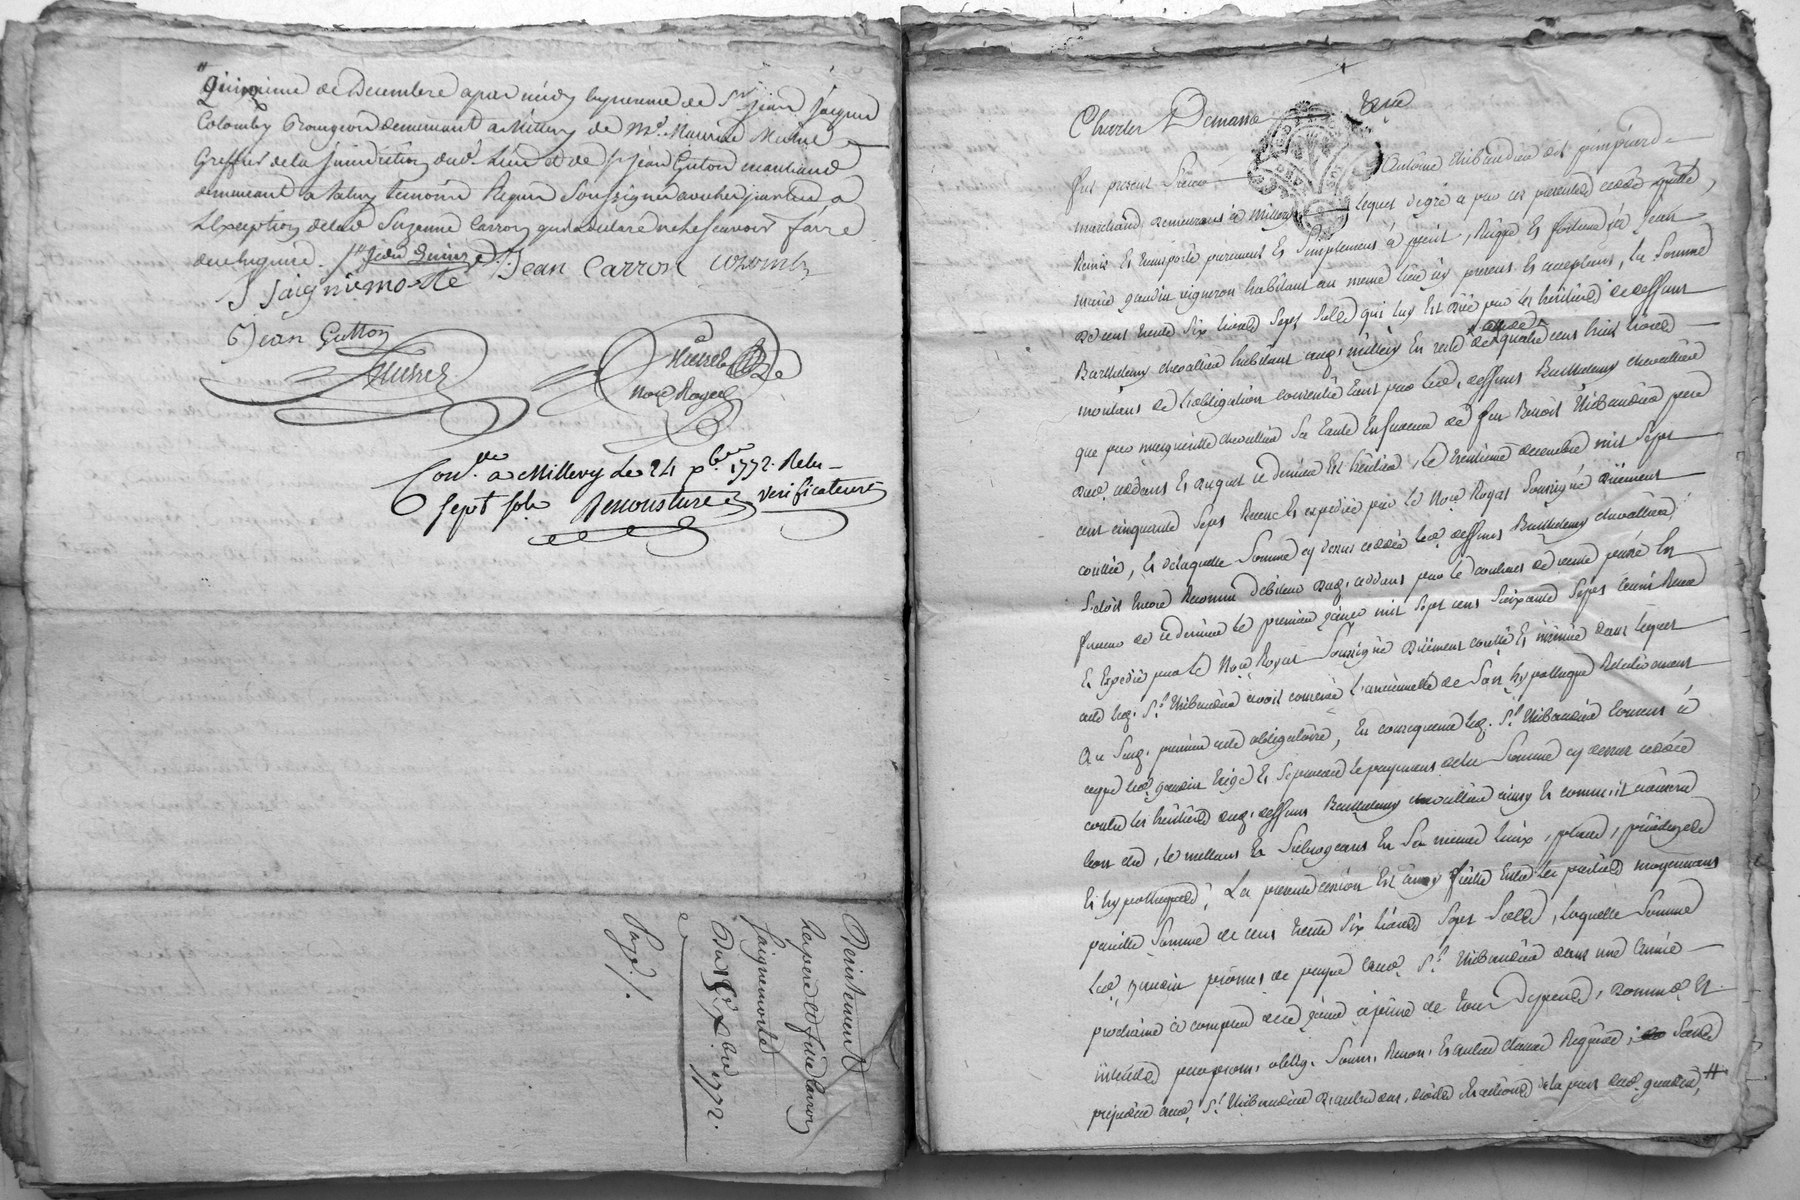 quinzieme de Decembre apres midy en presence de Sr Jean Jaques
Colomby Bourgeois demeurant a Millery de Me Maurice
Greffier de la Jurisdiction dud. lieu et de Sr Jean Gutton marchand
demeurant a temoins Requis Soussignes avec les parties a
L'Exception de lad Suzanne Carron qui a declare ne le scavoir faire
de ce enquise.
J Jaignemorte Jean Carron Colomby
Jean Gutton
Nore Royal
Conlle a Millery le 24 xbre 1772. Recu
sept sols verificature
Desistement
par pere et fille Carron
Jaignemorte
Du 15 xbre 1772.
Payé /.
Charles Demasso
fut present Sieur Antoine Thibaudier de pimpiard
marchand demeurant à Millery lequel de gré a par ces presentes cedé quitté,
Remis Et transporté purement Et Simplement à peril, Risque Et fortune à Jean
marie gaudin vigneron habitant au meme lieu icy present Et acceptant, la Somme
de cent trente Six livres Sept Sols qui luy Est düe par les heritiers de deffunt
Barthelemy chevallier habitant aud. millery En reste de celle de quatre cent huit livres
montant de l'obligation consentie tant par led. deffunt Barthelemy chevallier
que par marguerite chevallier Sa tante En faveur de feu Benoit Thibaudier pere
dud. cedant Et duquel ce dernier Est heritier, le trentieme decembre mil Sept
cent cinquante Sept Receue Et expediée par le Nore Royal Soussigné düement
conllée, Et de laquelle Somme cy dessus cedée led. deffunt Barthelemy chevallier
S'etoit Encore Reconnu debiteur dud. cedant par le contrat de vente passé En
faveur de ce dernier le premier janvier mil Sept cent Soixante Sept aussi Receu
Et Expedié par le Nore Royal Soussigné Düement conllé Et insinué dans lequel
acte led. Sr Thibaudier avoit conservé l'ancienneté de Son hypotheque Relativement
Au Susd. premier acte obligatoire, En consequence led. Sr Thibaudier Consent à
ceque led. gaudin Exige Et Se procure le payement de la Somme cy dessus cedée
contre les heritiers dud. deffunt Barthelemy chevallier ainsy Et comme il avisera
bon etre, le mettant Et Subrogeant En Sa meme lieux, place, privileges
Et hypotheques; La presente cession Est ainsy faitte Entre les parties moyennant
pareille Somme de cent trente Six livres Sept Sols, laquelle Somme
Led. gaudin promet de payer aud. Sr Thibaudier dans une année
prochaine à compter de ce jour à peine de tous depends, dommages Et
interets par prom. oblig. Soum. Renon. Et autres clauses Requises, Sans
prejudice aud. Sr Thibaudier d'autres dus, droits Et actions de la part dud. gaudin,